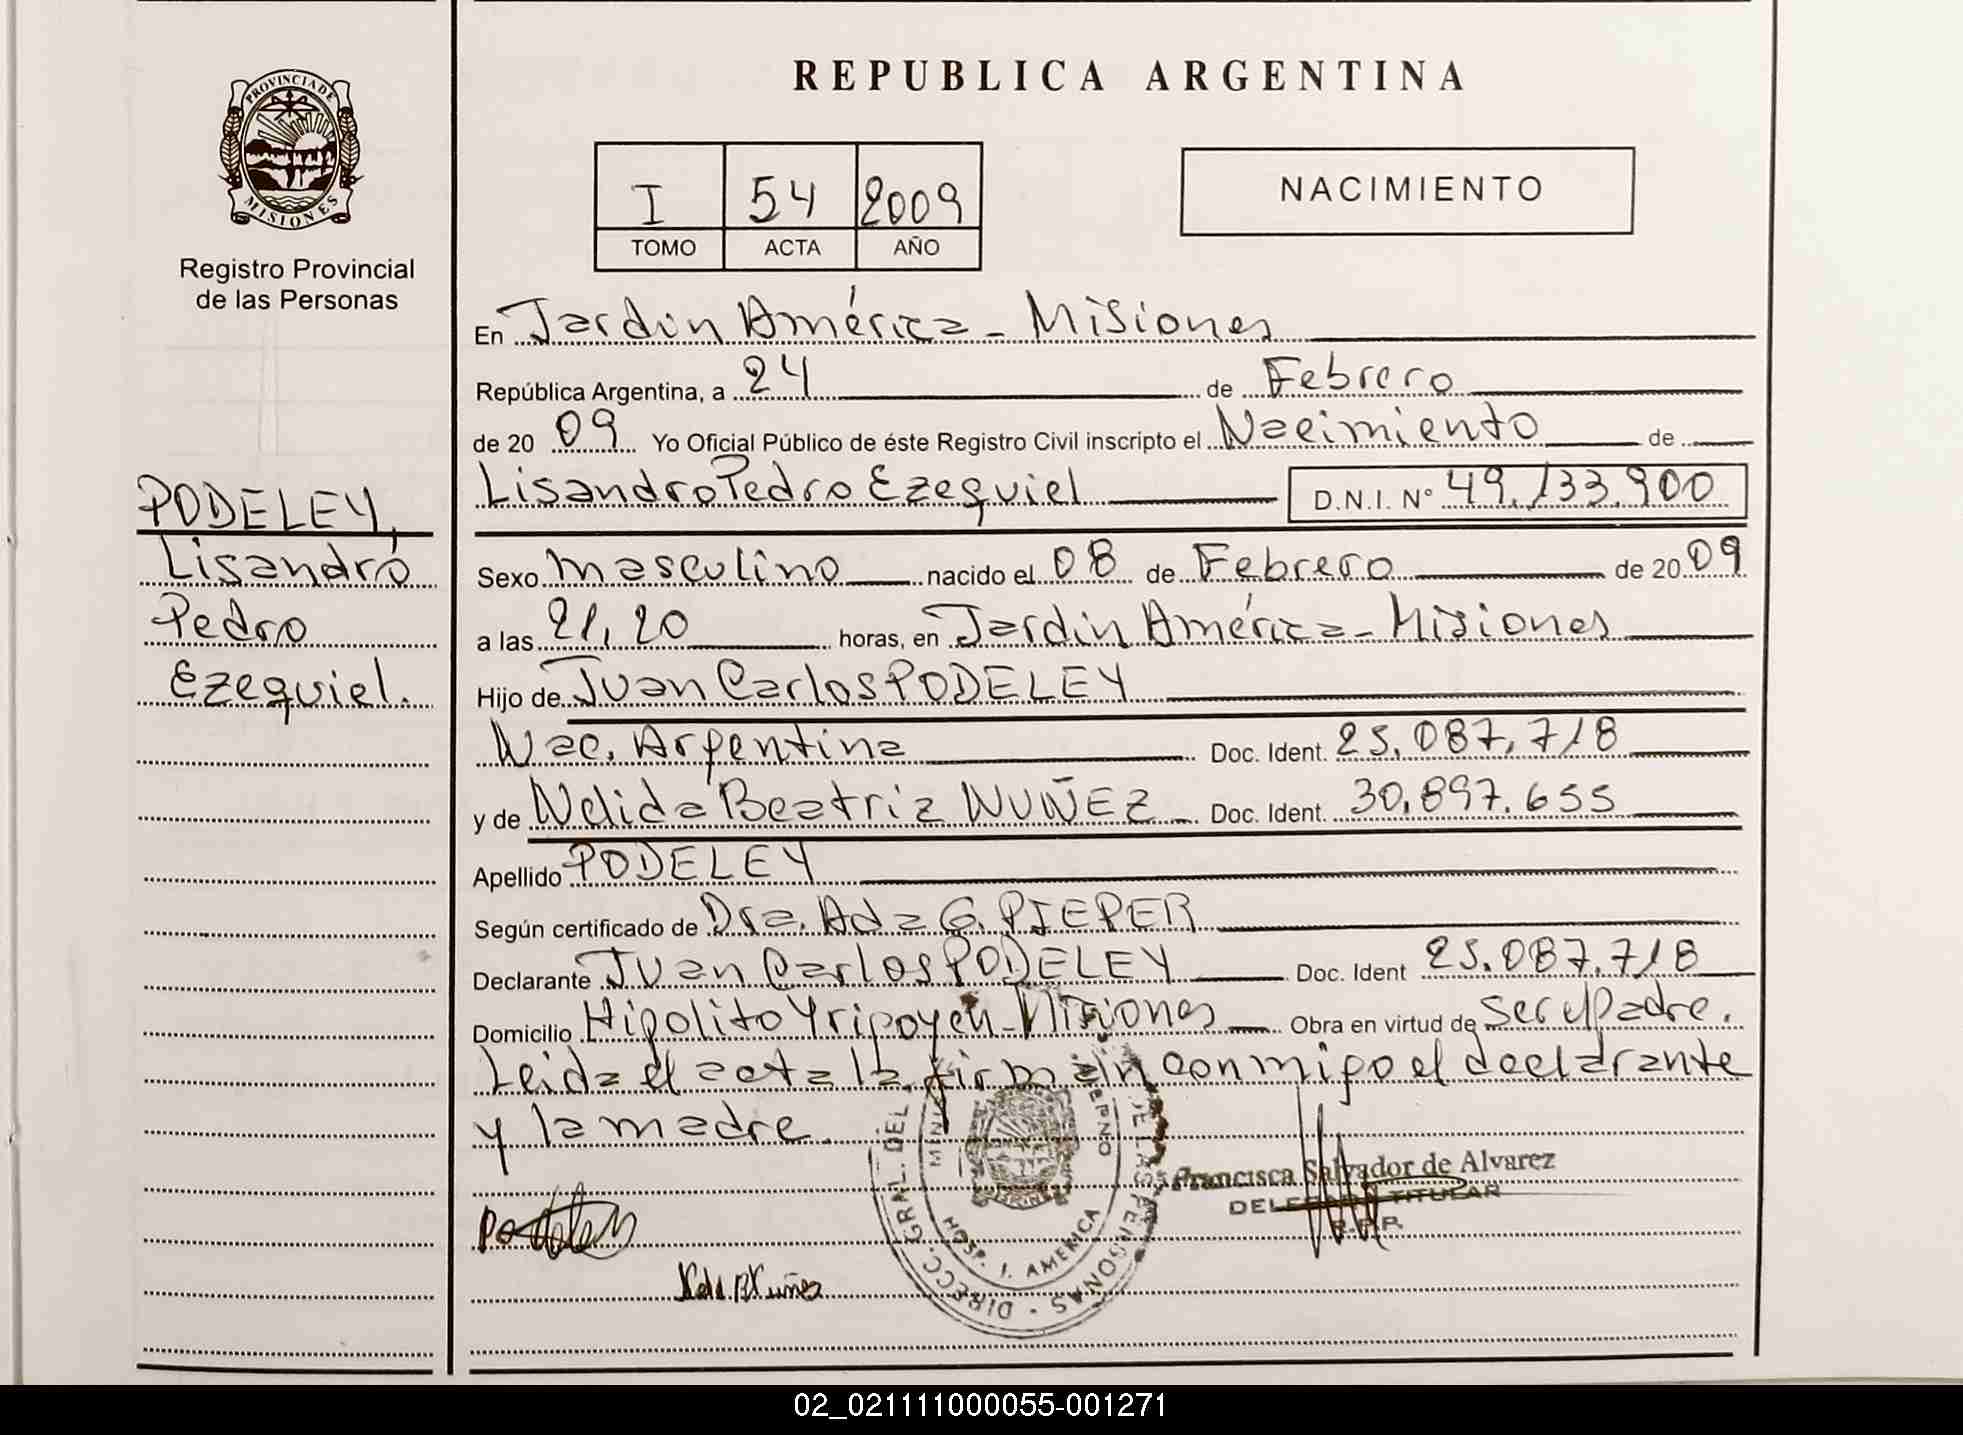 PROVINCIA DE
MISIONES
Registro Provincial
de las Personas
PODELEY,
Lisandro
Pedro
Ezequiel.
REPUBLICA ARGENTINA
I 54 2009
TOMO ACTA AÑO
NACIMIENTO
En Jardín América - Misiones
República Argentina, a 24 de Febrero
de 20 09 Yo Oficial Público de éste Registro Civil inscripto el Nacimiento de
Lisandro Pedro Ezequiel D.N.I. N° 49.133.900
Sexo Masculino nacido el 08 de Febrero de 20 09
a las 21,20 horas, en Jardín América - Misiones
Hijo de Juan Carlos PODELEY
Nac. Argentina Doc. Ident. 25.087.718
y de Nelida Beatriz NUÑEZ Doc. Ident. 30.897.655
Apellido PODELEY
Según certificado de Dra. Ada G. PIEPER
Declarante Juan Carlos PODELEY Doc. Ident 25.087.718
Domicilio Hipolito Yrigoyen - Misiones Obra en virtud de ser el Padre.
Leida el acta la firman conmigo el declarante
y la madre.
Francisca Salvador de Alvarez
DELEGADA TITULAR
R.P.P.
DIRECC. GRAL. DEL DE LAS PERSONAS
HOSP. J. AMERICA
02_021111000055-001271